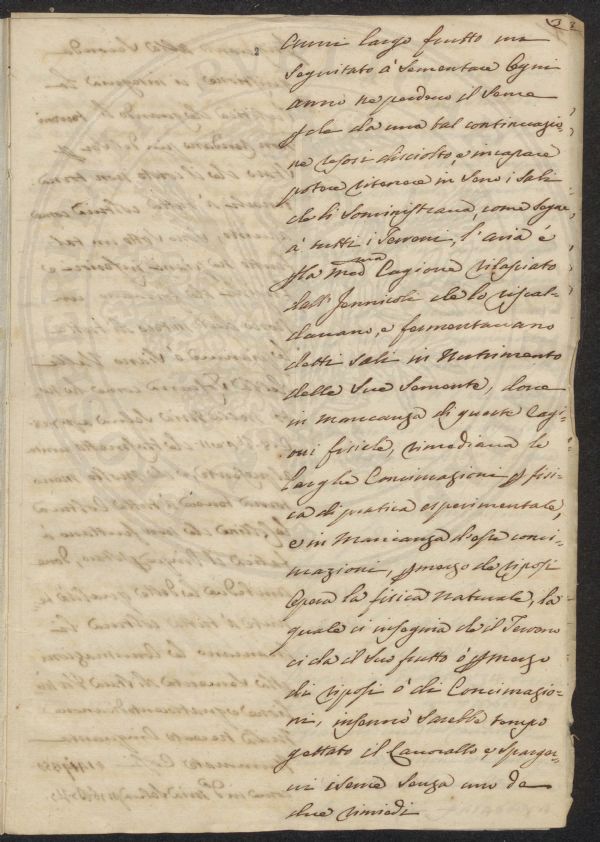 anni largo frutto ma
seguitato à sementare ogni
anno ne perdere il seme
p che da una tal continuazio-
ne resosi disciolto, e incapace
potere ritenere in seno i sali
che li somministrava, come segue
à tutti i Terreni, l'aria é
p la med.ma Cagione rilasciato
dall'
che lo riscal-
davano, e fermentavano
detti sali in Nutrimento
delle sue semente, dove
in mancanza di queste Cagi-
oni fisiche, rimediava le
larghe Concimazioni p fisi-
ca di pratica esperimentale,
e in mancanza d'esse conci-
mazioni, p mezzo de riposi
opera la fisica naturale, la
quale ci insegna che il Terreno
ci da il suo frutto ò p mezzo
di riposi ò di Concimazio-
ni, insennò sarebbe tempo
gettato il Lavorallo e sparger-
vi il seme senza uno de
due rimedi